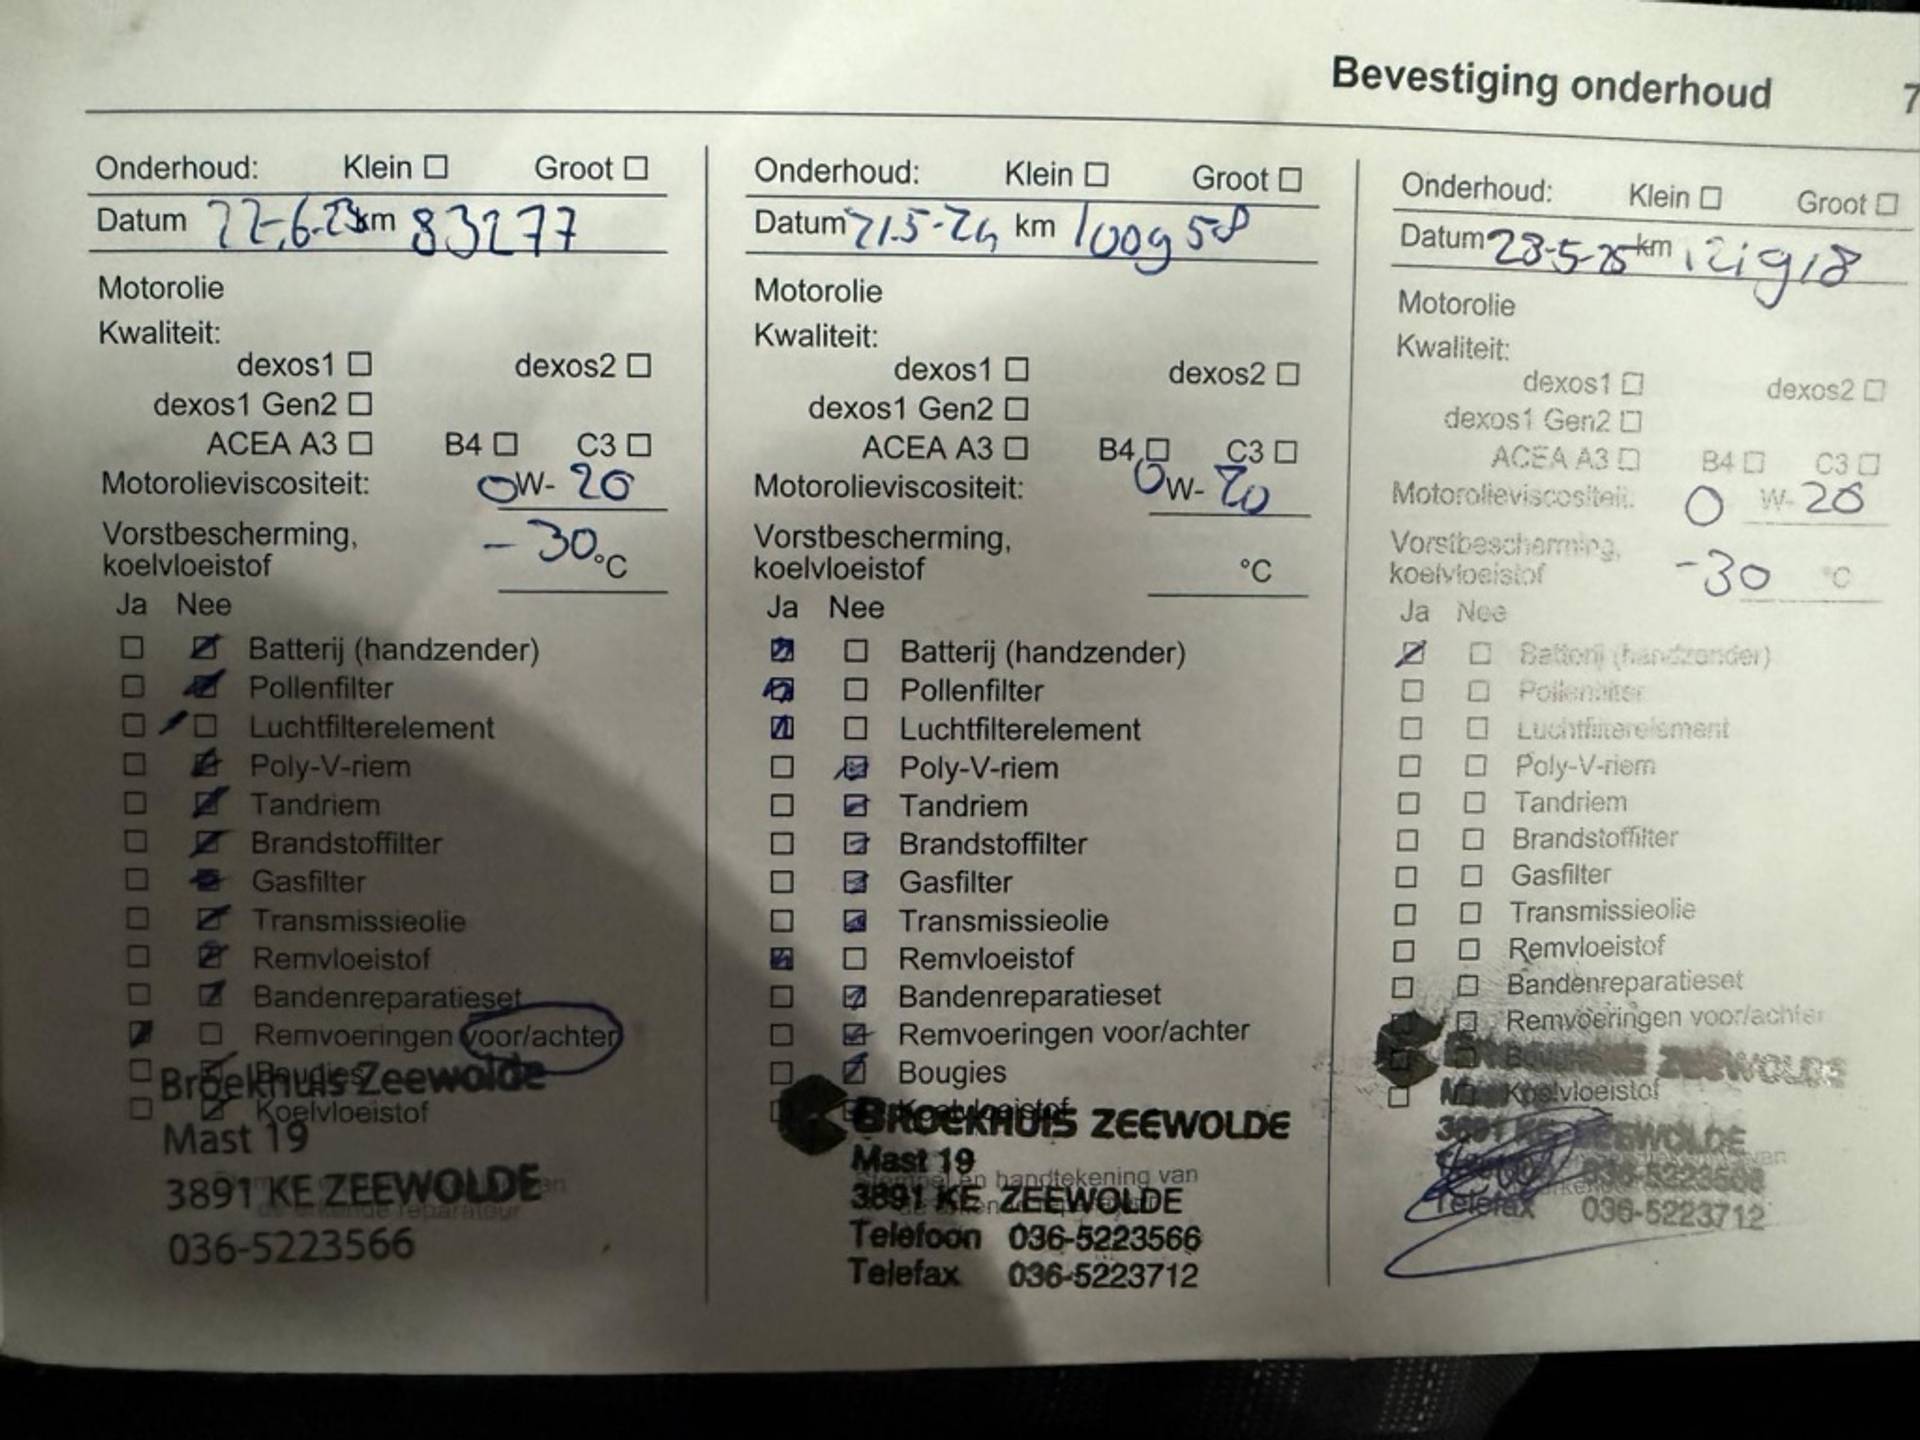 Bevestiging onderhoud 7
Onderhoud: Klein Groot
Datum 22-6-23 km 83277
Motorolie
Kwaliteit:
dexos1 dexos2
dexos1 Gen2
ACEA A3 B4 C3
Motorolieviscositeit: 0W-20
Vorstbescherming, -30°C
koelvloeistof
Ja Nee
Batterij (handzender)
Pollenfilter
Luchtfilterelement
Poly-V-riem
Tandriem
Brandstoffilter
Gasfilter
Transmissieolie
Remvloeistof
Bandenreparatieset
Remvoeringen voor/achter
Bougies
Broekhuis Zeewolde
Koelvloeistof
Mast 19
3891 KE ZEEWOLDE
de erkende reparateur
036-5223566
Onderhoud: Klein Groot
Datum 21.5-24 km 100958
Motorolie
Kwaliteit:
dexos1 dexos2
dexos1 Gen2
ACEA A3 B4 C3
Motorolieviscositeit: 0W-20
Vorstbescherming,
koelvloeistof °C
Ja Nee
Batterij (handzender)
Pollenfilter
Luchtfilterelement
Poly-V-riem
Tandriem
Brandstoffilter
Gasfilter
Transmissieolie
Remvloeistof
Bandenreparatieset
Remvoeringen voor/achter
Bougies
Koelvloeistof
BROEKHUIS ZEEWOLDE
Mast 19
Stempel en handtekening van
3891 KE ZEEWOLDE
Telefoon 036-5223566
Telefax 036-5223712
Onderhoud: Klein Groot
Datum 28-5-25 km 121918
Motorolie
Kwaliteit:
dexos1 dexos2
dexos1 Gen2
ACEA A3 B4 C3
Motorolieviscositeit: 0 W-20
Vorstbescherming,
koelvloeistof -30 °C
Ja Nee
Batterij (handzender)
Pollenfilter
Luchtfilterelement
Poly-V-riem
Tandriem
Brandstoffilter
Gasfilter
Transmissieolie
Remvloeistof
Bandenreparatieset
Remvoeringen voor/achter
BROEKHUIS ZEEWOLDE
Koelvloeistof
3891 KE ZEEWOLDE
036-5223566
Telefax 036-5223712